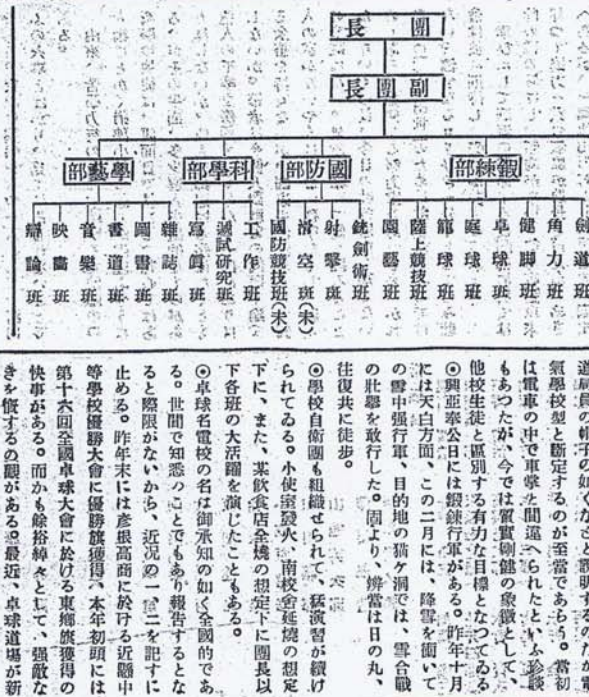 團長
副團長
鍛練部
國防部
科學部
學藝部
劍道班
角力班
健脚班
卓球班
庭球班
籠球班
陸上競技班
園藝班
銃劍術班
射擊班
滑空班(未)
國防競技班(未)
工作班
試研究班
寫眞班
雜誌班
圖書班
書道班
音樂班
映畫班
辯論班
氣學校型と斷定するのが至當であらう。當初
は電車の中で車掌と間違へられたといふ珍談
もあつたが、今では質實剛健の象徴として、
他校生徒と區別する有力な目標となつてゐる
◉興亞奉公日には鍛錬行軍がある。昨年十月
には天白方面、この二月には、降雪を衝いて
の雪中强行軍、目的地の猫ヶ洞では、雪合戰
の壯擧を敢行した。固より、辨當は日の丸、
往復共に徒歩。
◉學校自衞團も組織せられて、猛演習が續け
られてゐる。小使室發火、南校舍延燒の想定
下に、また、某飮食店全燒の想定下に團長以
下各班の大活躍を演じたこともある。
◉卓球名電校の名は御承知の如く全國的であ
る。世間で知悉のことでもあり報告するとな
ると際限がないから、近况の一、二を記すに
止める。昨年末には彥根高商に於ける近縣中
等學校優勝大會に優勝旗獲得、本年初頭には
第十六回全國卓球大會に於ける東鄕旗獲得の
快事がある。而かも餘裕綽々として、强敵な
きを慨するの觀がある。最近、卓球道場が新